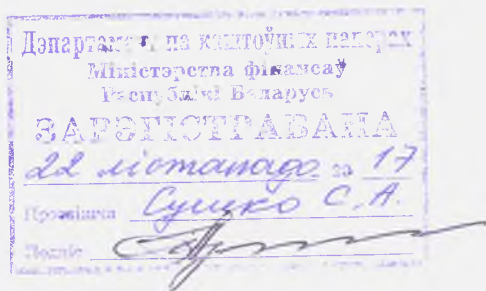 Дэпартамент па каштоўных паперах
Міністэрства фінансаў
Рэспублікі Беларусь
ЗАРЭГІСТРАВАНА
22 лістапада 20 17
Прозвішча Сушко С.А.
Подпіс